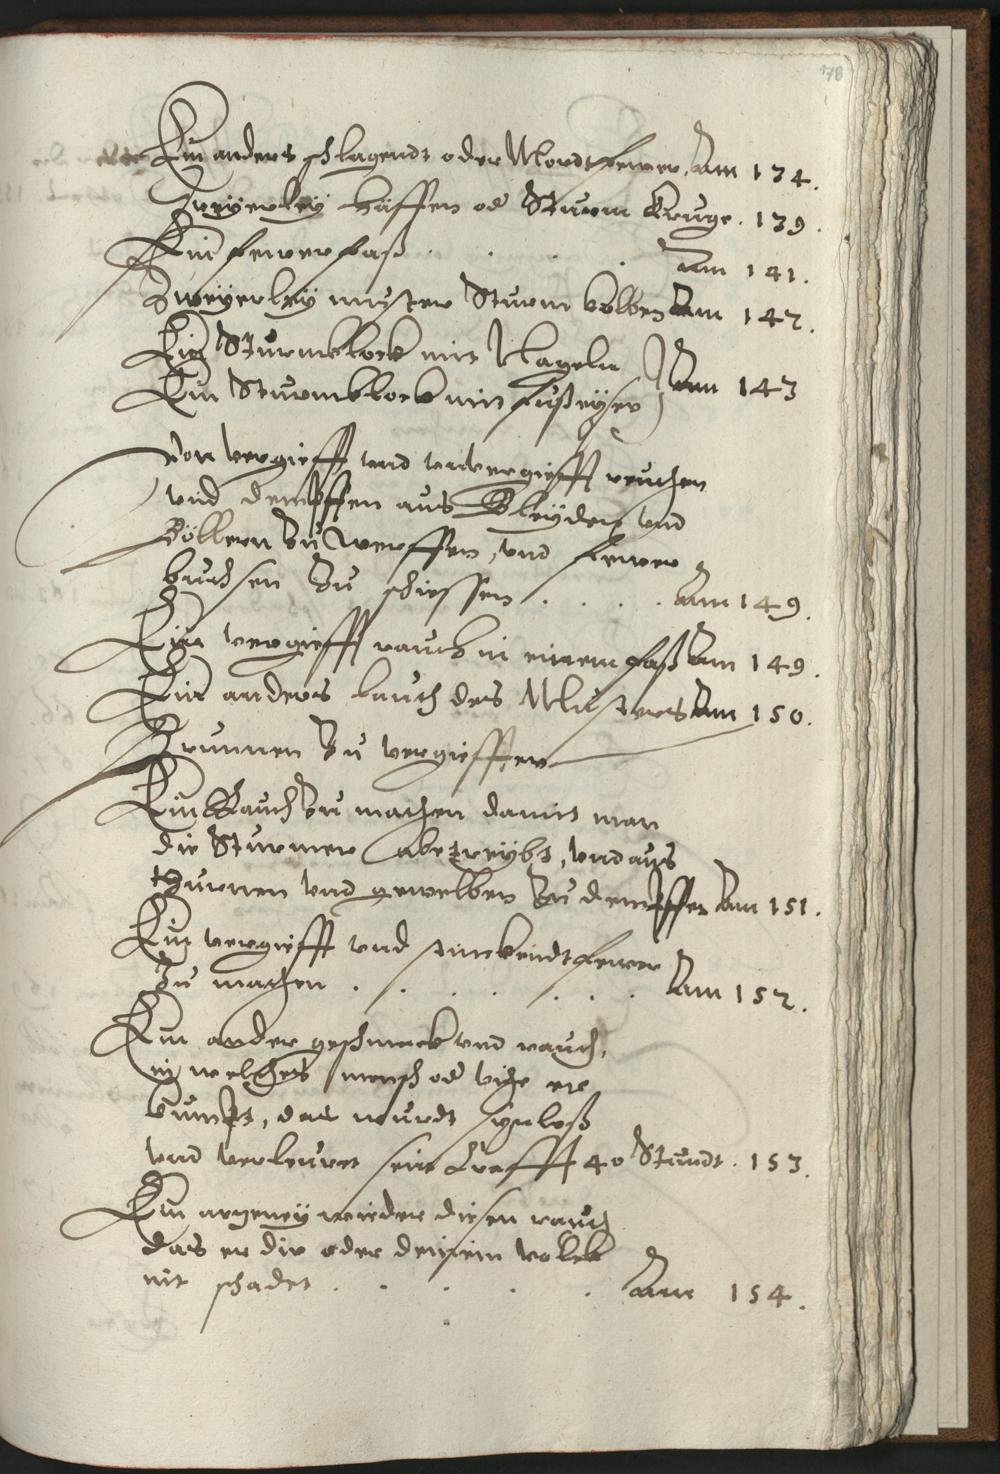 178
Ein anders schlagendt oder Mordtfewer, Am 134.
Zweyerley häffen od Sturm Krüge. 139.
Ein fewerfaß . . . . Am 141.
Zweyerley muster Sturm kolben Am 142.
Ein Sturmblock mit Nageln
Ein Sturmblock mit fußeysen } Am 143
Von vergiefft und unvergiefft reuchen
und dempffen aus Bleyden und
Böllern zu werffen, und fewer
buchsen zu schiessen . . . . Am 149.
Ein vergiefft rauch in einem faß Am 149.
Ein anders lauth des Musters Am 150.
Brunnen zu vergifften
Ein Rauch zu machen damit man
die Sturmer abetreybt, und aus
thurnen und gewelben zu dempffen Am 151.
Ein vergiefft und stinckendt fewer
zu machen . . . . . . . Am 152.
Ein ander geschmack und rauch,
in welches mensch od vihe ein
kumpt, das wurdt synloß
und verleuret sein Krafft 40 Stundt. 153.
Ein artzeney wieder diesen rauch
das er dir oder deinem volck
nit schadet . . . . . Am 154.